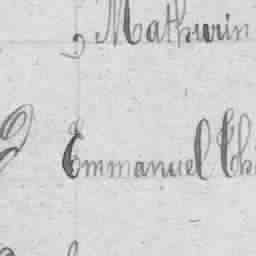 , Mathurin
2 Emmanuel Ch